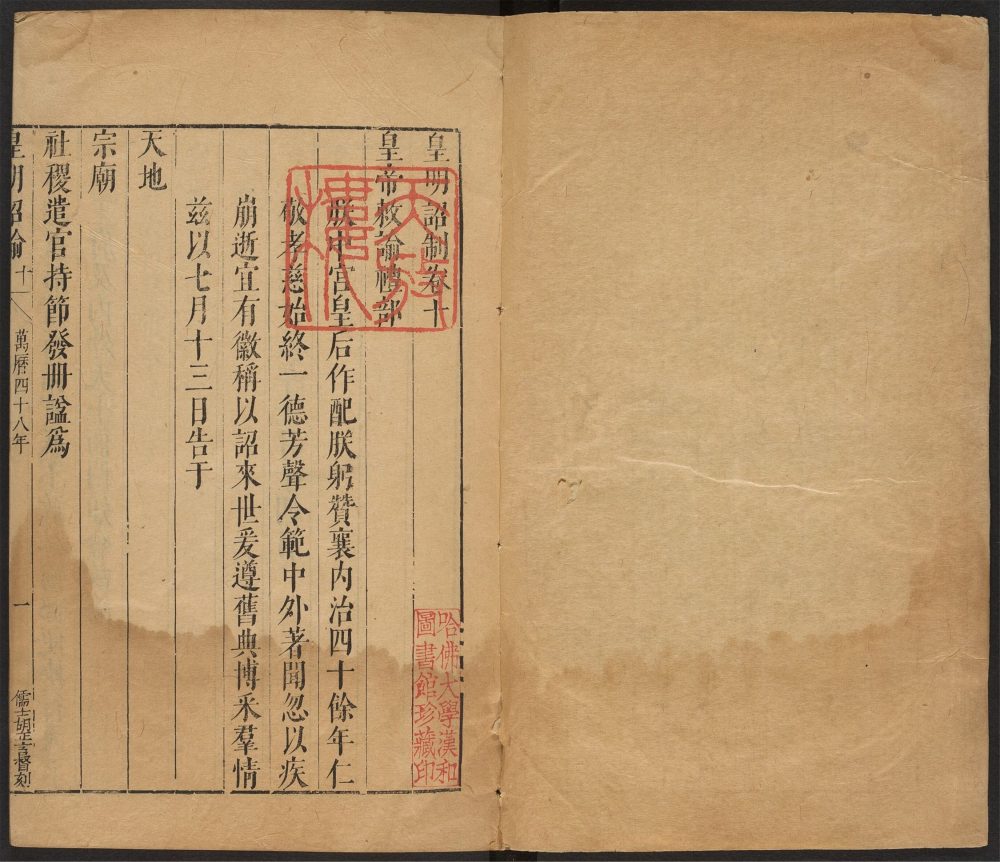 皇明詔制卷十
皇帝敕諭禮部
朕中宮皇后作配朕躬贊襄內治四十餘年仁
敬孝慈始終一德芳聲令範中外著聞忽以疾
崩逝宜有徽稱以詔來世爰遵舊典博采羣情
茲以七月十三日告于
天地
宗廟
社稷遣官持節發冊諡爲
皇明詔諭
十
萬曆四十八年
一
儒士胡正言督刻
哈佛大學漢和
圖書館珍藏印